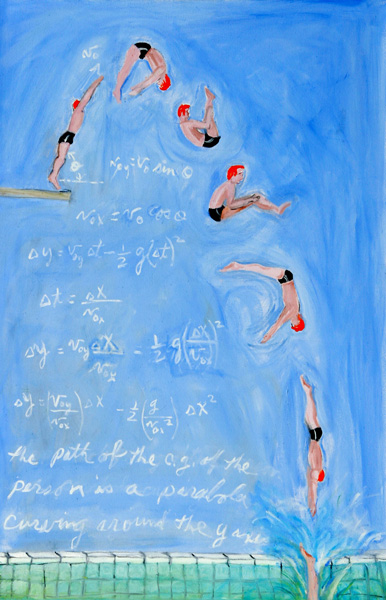 v₀
θ
v₀y = v₀ sin θ
v₀x = v₀ cos θ
Δy = v₀y Δt - 1/2 g(Δt)²
Δt = Δx/v₀x
Δy = v₀y Δx/v₀x - 1/2 g(Δx/v₀x)²
Δy = (v₀y/v₀x) Δx - 1/2 (g/v₀x²) Δx²
the path of the c.g. of the
person is a parabola
curving around the y axis